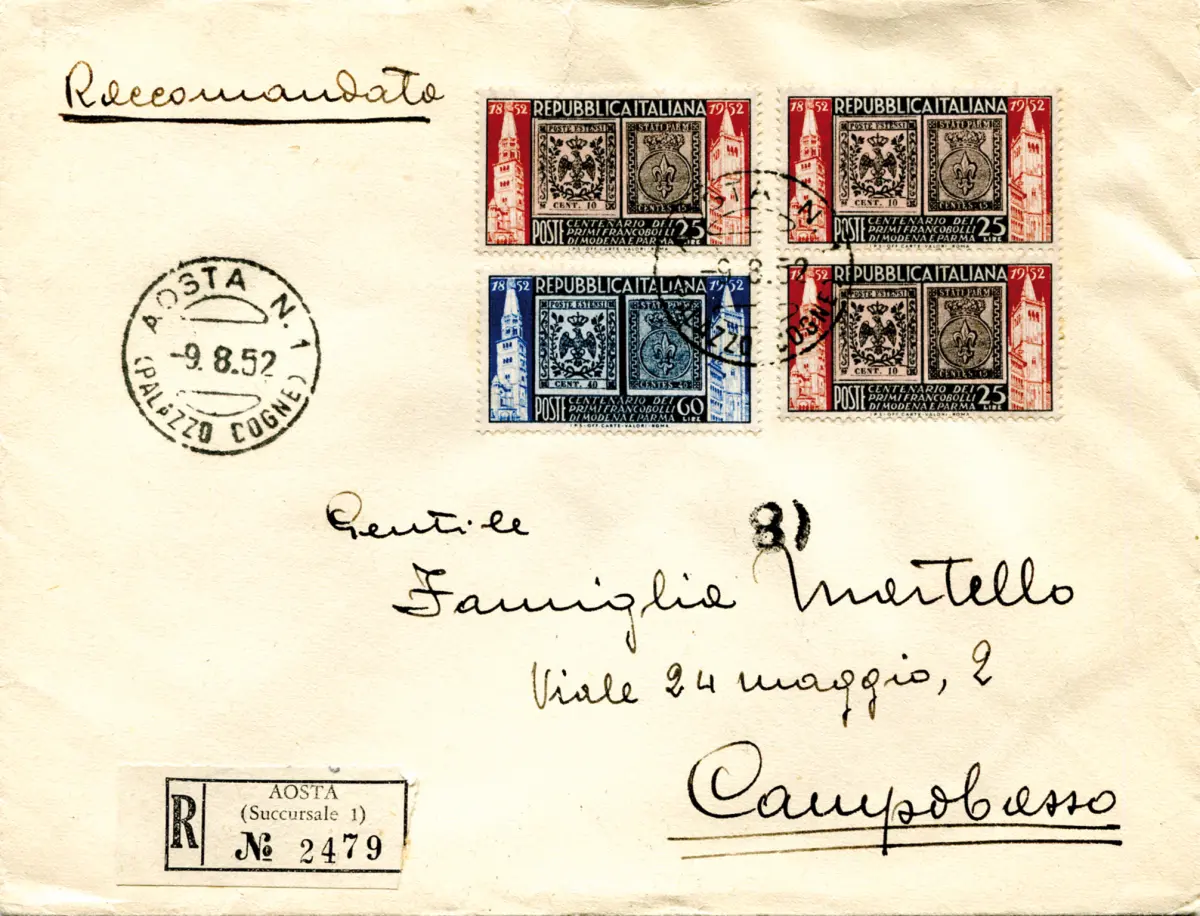 Raccomandata
1852 REPUBBLICA ITALIANA 1952
POSTE ESTENSI
CENT. 10
STATI PARM
CENTES. 15
POSTE CENTENARIO DEI PRIMI FRANCOBOLLI DI MODENA E PARMA 25 LIRE
I.P.S-OFF. CARTE-VALORI-ROMA
1852 REPUBBLICA ITALIANA 1952
POSTE ESTENSI
CENT. 10
STATI PARM
CENTES. 15
POSTE CENTENARIO DEI PRIMI FRANCOBOLLI DI MODENA E PARMA 25 LIRE
I.P.S-OFF. CARTE-VALORI-ROMA
1852 REPUBBLICA ITALIANA 1952
POSTE ESTENSI
CENT. 40
STATI PARM
CENTES.
POSTE CENTENARIO DEI PRIMI FRANCOBOLLI DI MODENA E PARMA 60 LIRE
I.P.S-OFF. CARTE-VALORI-ROMA
1852 REPUBBLICA ITALIANA 1952
POSTE ESTENSI
CENT. 10
STATI PARM
CENTES. 15
POSTE CENTENARIO DEI PRIMI FRANCOBOLLI DI MODENA E PARMA 25 LIRE
I.P.S-OFF. CARTE-VALORI-ROMA
AOSTA N.
-9.8.52
(PALAZZO COGNE)
AOSTA N. 1
-9.8.52
(PALAZZO COGNE)
Gentile
81
Famiglia Martello
Viale 24 maggio, 2
Campobasso
R
AOSTA
(Succursale 1)
№ 2479